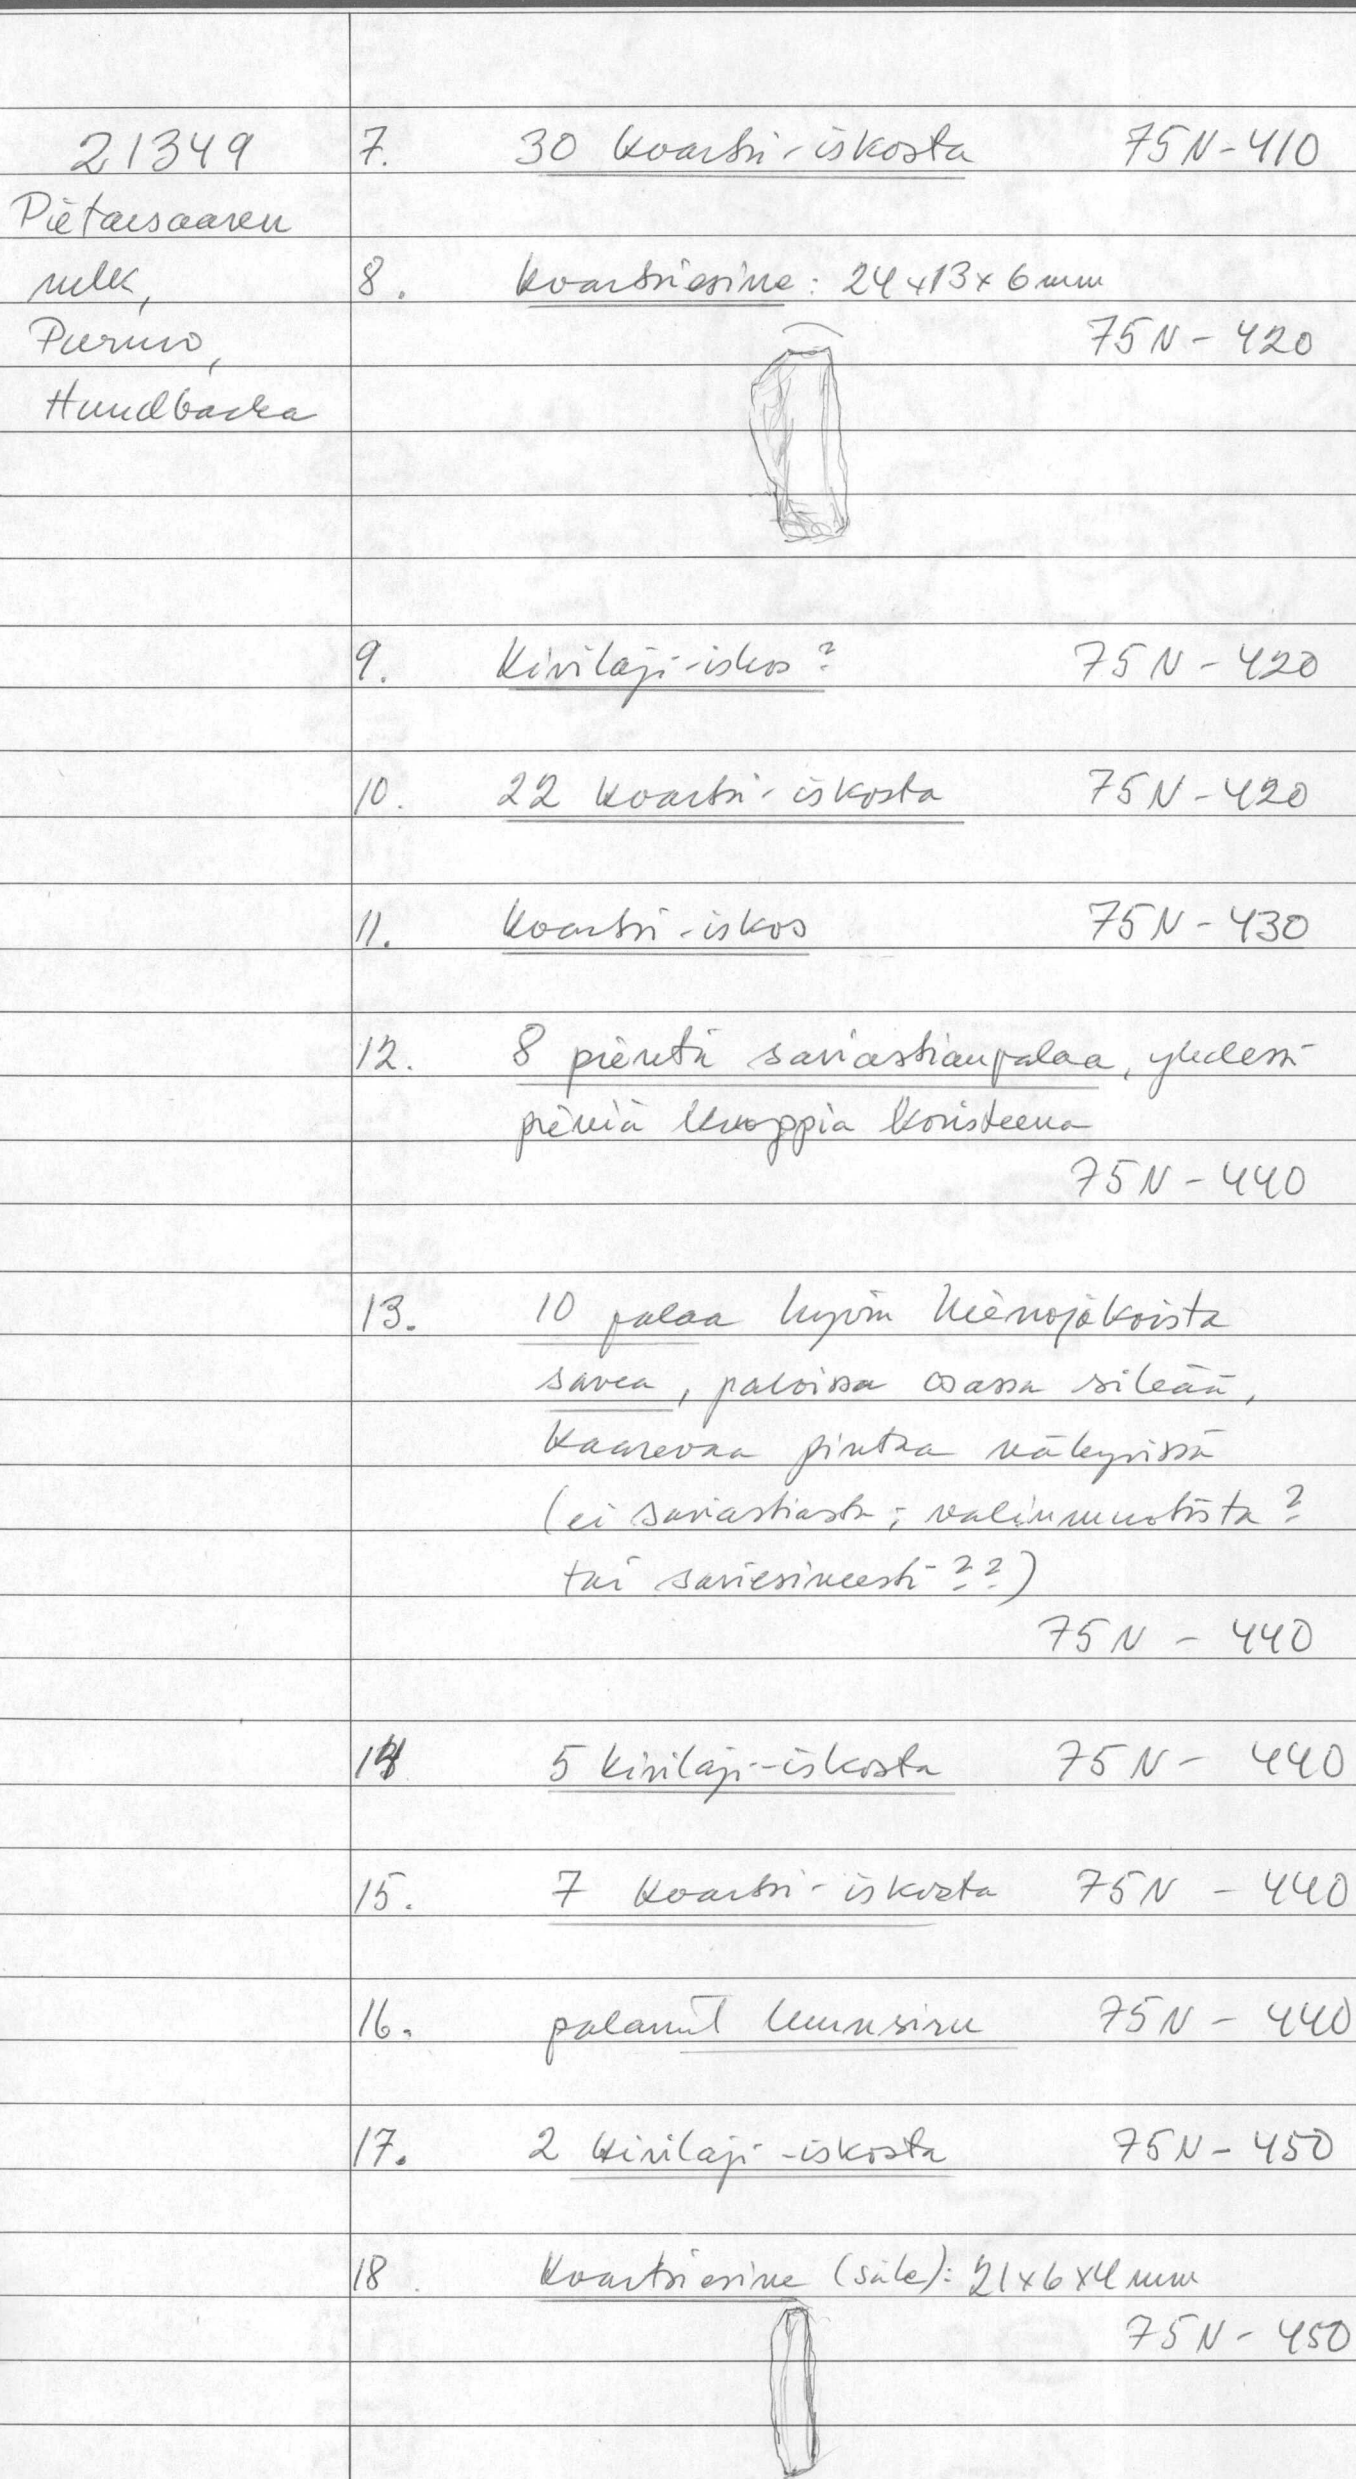 21349 7. 30 kvartsi-iskosta 75N-410
Pietarsaaren
mlk, 8. kvartsiesine: 24x13x6mm
Purmo, 75N-420
Hundbacka
9. kivilaji-iskos? 75N-420
10. 22 kvartsi-iskosta 75N-420
11. kvartsi-iskos 75N-430
12. 8 pientä saviastianpalaa, yhdessä
pieniä kuoppia koristeena
75N-440
13. 10 palaa hyvin hienojakoista
savea, paloissa osassa sileää,
kaarevaa pintaa näkyvissä
(ei saviastiasta; valinmuotista?
tai saviesineestä??)
75N-440
14 5 kivilaji-iskosta 75N-440
15. 7 kvartsi-iskosta 75N-440
16. palanut luunsiru 75N-440
17. 2 kivilaji-iskosta 75N-450
18. kvartsiesine (säle): 21x6x4mm
75N-450